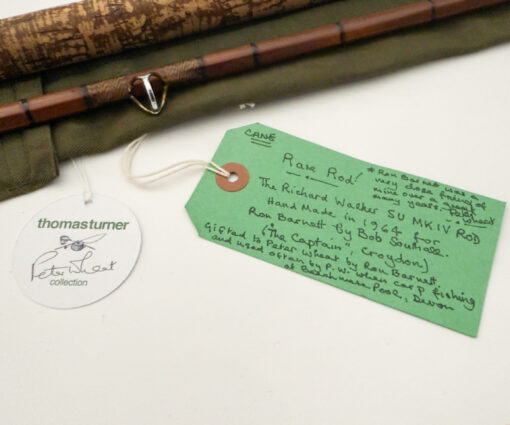 CANE
Rare Rod!
* Ron Barnett was a
very close friend of
mine over a great
many years. Peter
Wheat
The Richard Walker SU MK IV ROD
Hand Made in 1964 for
Ron Barnett by Bob Southall.
("The Captain", Croydon)
Gifted to Peter Wheat by Ron Barnett
and used often by P.W. when carp fishing
at Beechmere Pool, Devon
thomasturner
Peter Wheat
collection